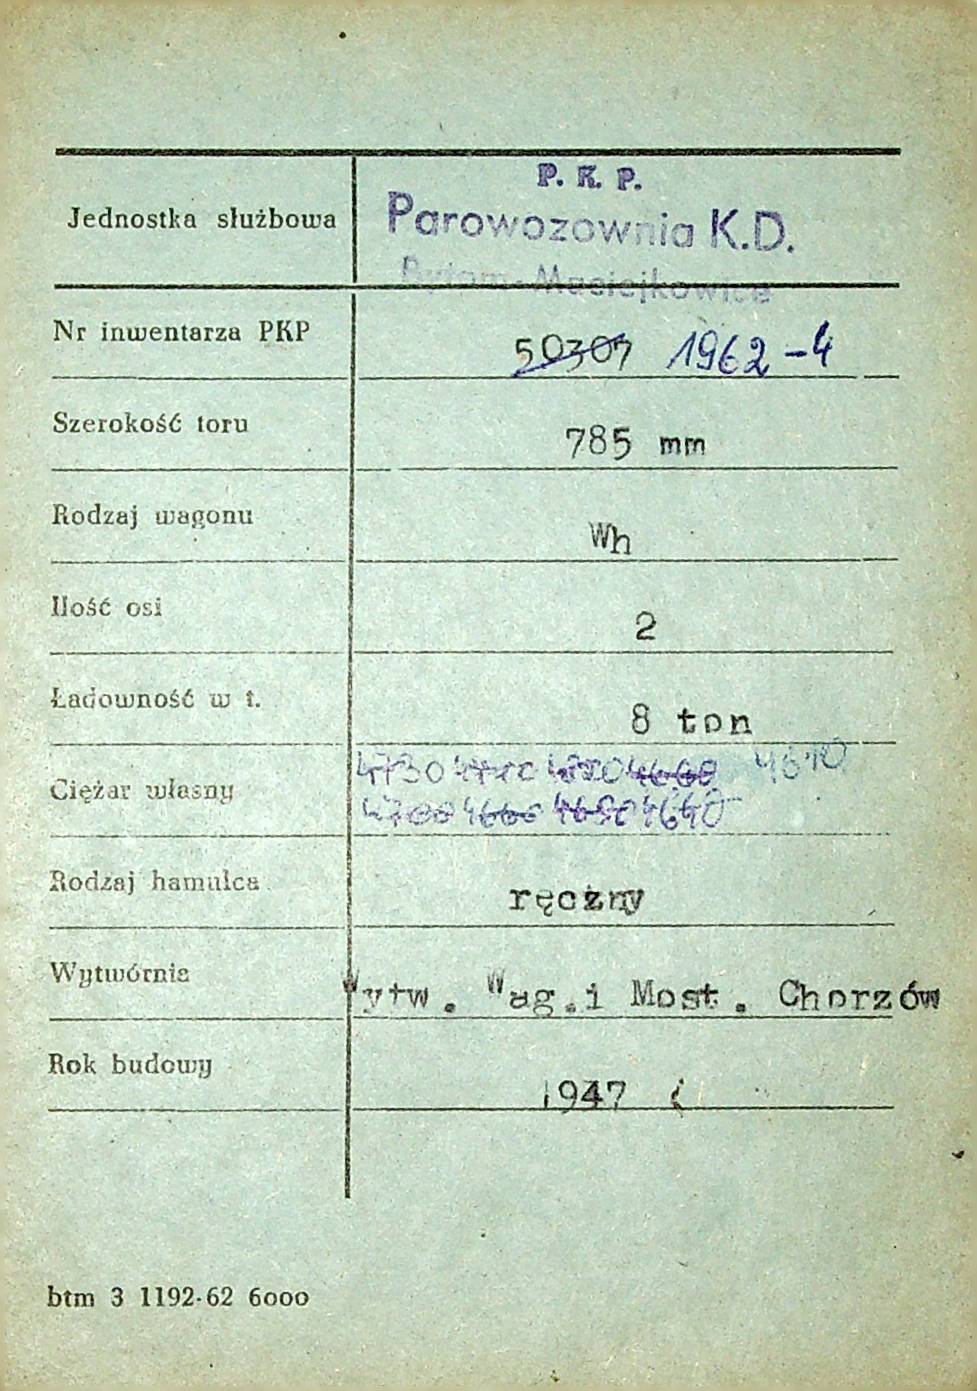 P. K. P.
Jednostka służbowa Parowozownia K.D.
Bytom-Maciejkowice
Nr inwentarza PKP 50307 1962-4
Szerokość toru 785 mm
Rodzaj wagonu Wh
Ilość osi 2
Ładowność w t. 8 ton
4730 4610
Ciężar własny
4700 4660 4640
Rodzaj hamulca ręczny
Wytwórnia Wytw. Wag.i Most. Chorzów
Rok budowy 1947
btm 3 1192-62 6000